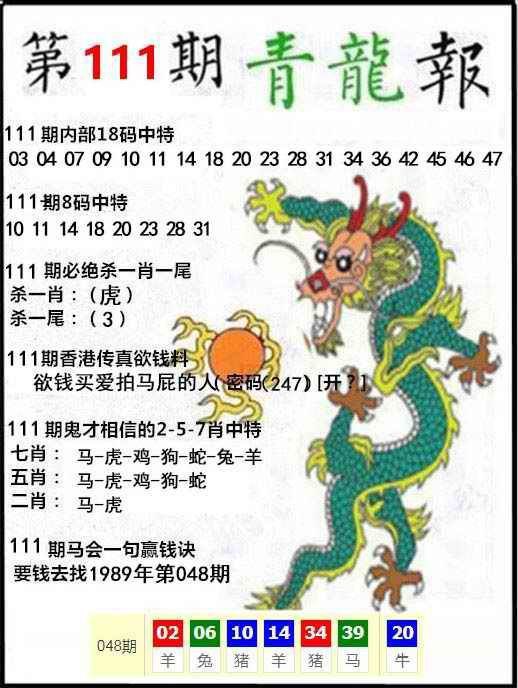 第111期青龍報
111期内部18码中特
03 04 07 09 10 11 14 18 20 23 28 31 34 36 42 45 46 47
111期8码中特
10 11 14 18 20 23 28 31
111 期必绝杀一肖一尾
杀一肖：(虎)
杀一尾：(3)
111期香港传真欲钱料
欲钱买爱拍马屁的人(密码(247)[开？]
111期鬼才相信的2-5-7肖中特
七肖： 马-虎-鸡-狗-蛇-兔-羊
五肖： 马-虎-鸡-狗-蛇
二肖： 马-虎
111 期马会一句赢钱诀
要钱去找1989年第048期
048期 02 06 10 14 34 39 20
羊 兔 猪 羊 猪 马 牛